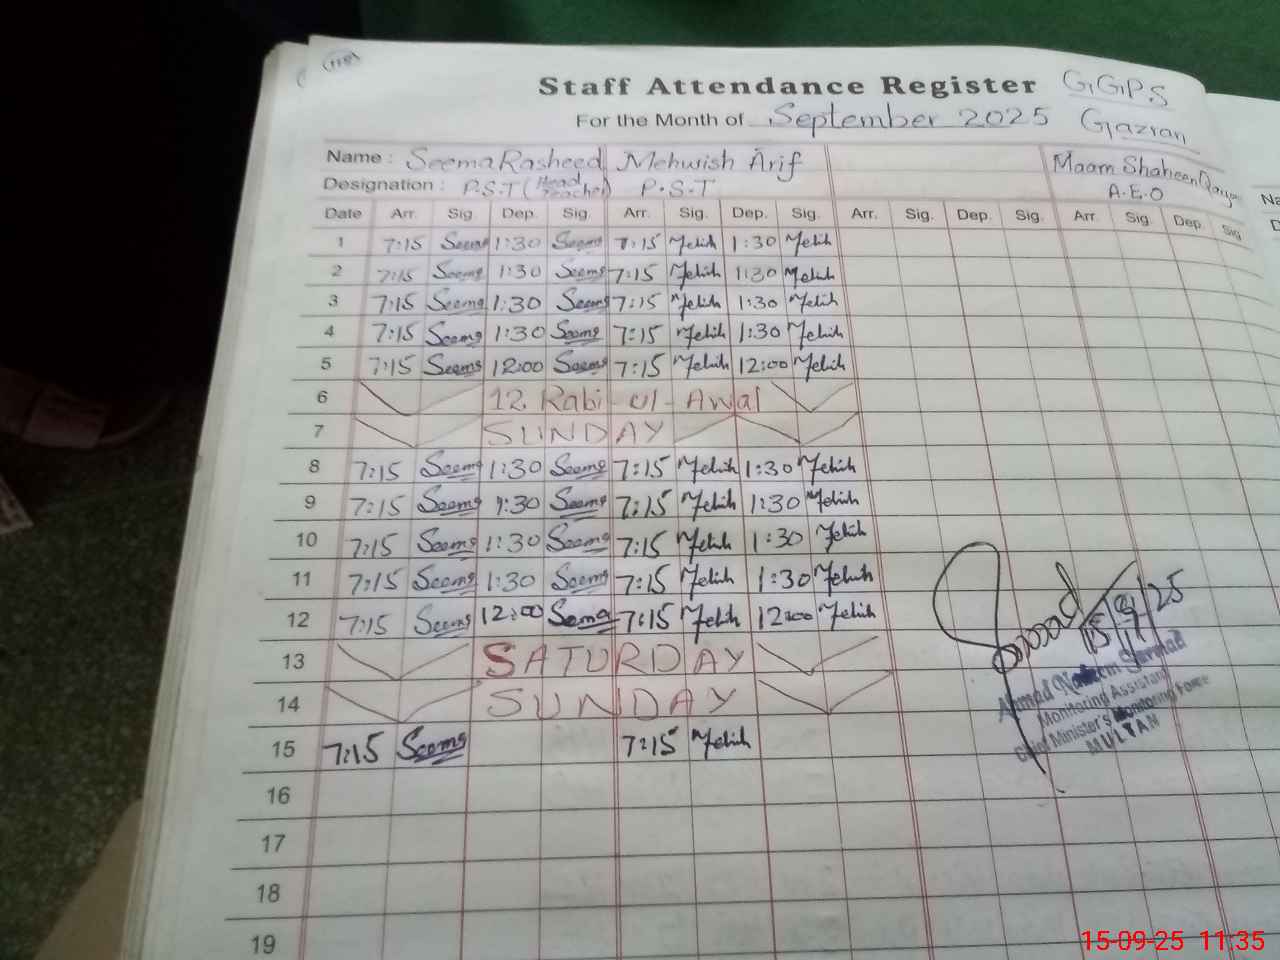 118
Staff Attendance Register G.G.P.S
For the Month of September 2025 Gazran
Name : Seema Rasheed Mehwish Arif Maam Shaheen
Designation : P.S.T (Head Teacher) P.S.T A.E.O
Date Arr. Sig. Dep. Sig. Arr. Sig. Dep. Sig. Arr. Sig. Dep. Sig. Arr. Sig. Dep. Sig
1 7:15 Seema 1:30 Seema 7:15 1:30
2 7:15 Seema 1:30 Seema 7:15 1:30
3 7:15 Seema 1:30 Seema 7:15 1:30
4 7:15 Seema 1:30 Seema 7:15 1:30
5 7:15 Seema 12:00 Seema 7:15 12:00
6 12 Rabi-ul-Awal
7 SUNDAY
8 7:15 Seema 1:30 Seema 7:15 1:30
9 7:15 Seema 1:30 Seema 7:15 1:30
10 7:15 Seema 1:30 Seema 7:15 1:30
11 7:15 Seema 1:30 Seema 7:15 1:30
12 7:15 Seema 12:00 Seema 7:15 12:00
13 SATURDAY
14 SUNDAY
15 7:15 Seema 7:15
16
17
18
19
15/9/25
Ahmad Sarmad
Monitoring Assistant
Chief Minister's Monitoring Force
MULTAN
15-09-25 11:35